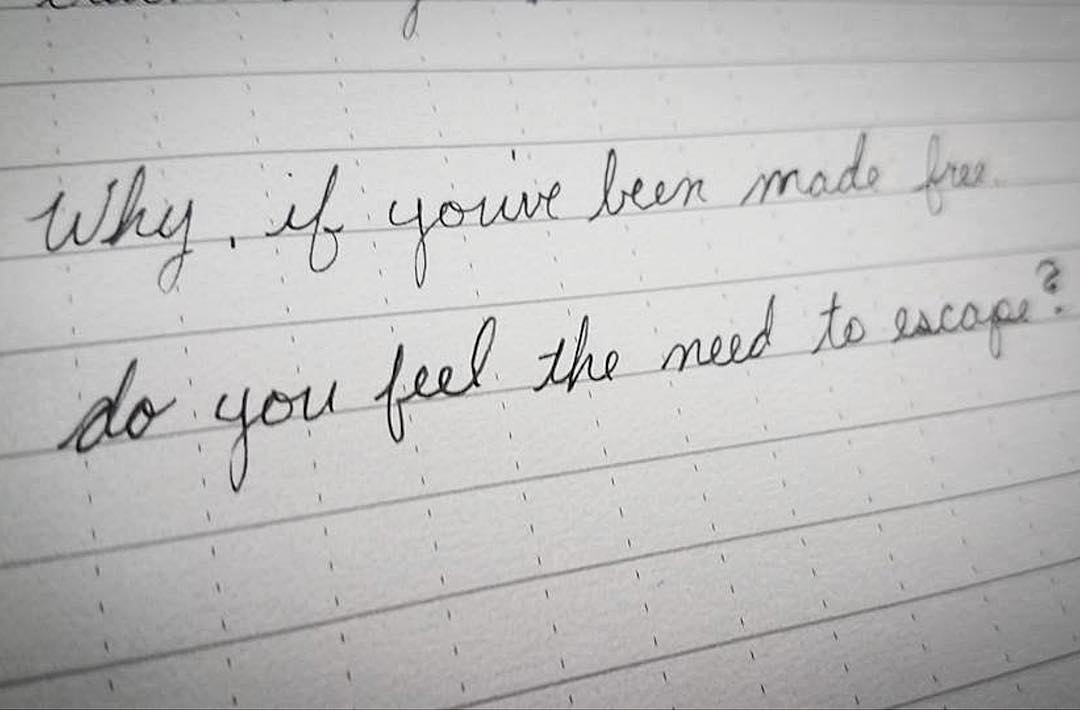 Why, if you've been made free
do you feel the need to escape?